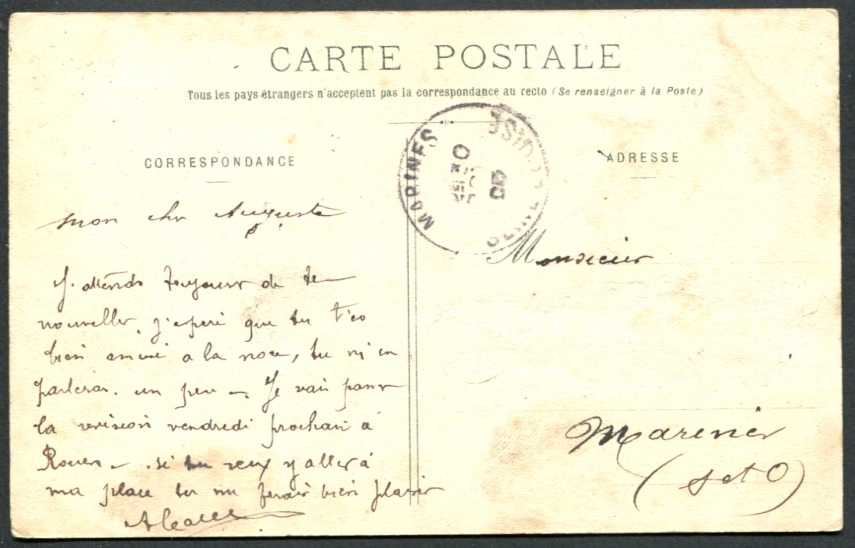 CARTE POSTALE
Tous les pays étrangers n'acceptent pas la correspondance au recto (Se renseigner à la Poste)
CORRESPONDANCE
ADRESSE
MARINES
mon cher Auguste
J. attends toujours de te
nouvelles. j'espere que tu t'es
bien amusé a la noce, tu m'en
parleras. un peu — Je vais passer
la revision vendredi prochain à
Rouen — . si tu veux y aller à
ma place tu me ferais bien plaisir
Monsieur
Marines
(S et O)